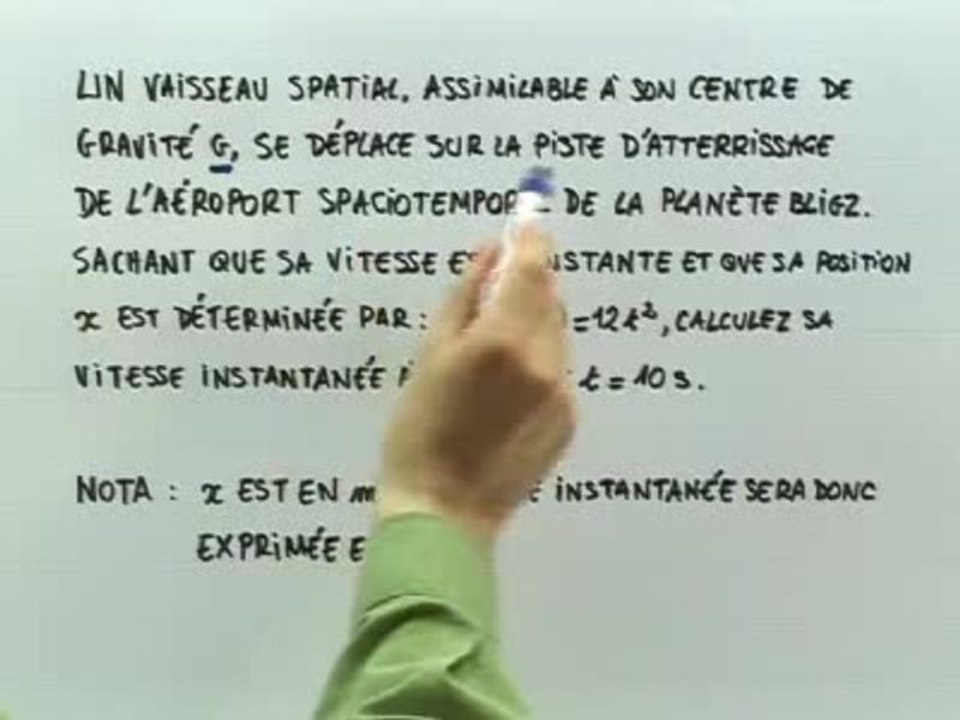 UN VAISSEAU SPATIAL, ASSIMILABLE À SON CENTRE DE
GRAVITÉ G, SE DÉPLACE SUR LA PISTE D'ATTERRISSAGE
DE L'AÉROPORT SPACIOTEMPOR DE LA PLANÈTE BLIGZ.
SACHANT QUE SA VITESSE ET QUE SA POSITION
x EST DÉTERMINÉE PAR : =12t², CALCULEZ SA
VITESSE INSTANTANÉE t = 10 s.
NOTA : x EST EN m INSTANTANÉE SERA DONC
EXPRIMÉE E